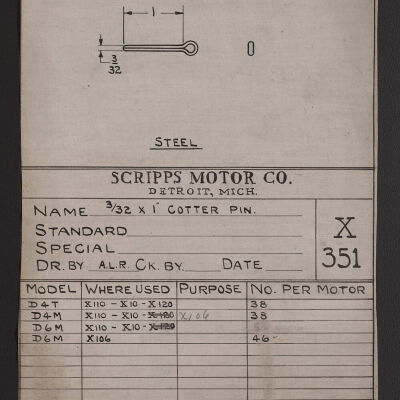 1
3/32
STEEL
SCRIPPS MOTOR CO.
DETROIT, MICH.
NAME 3/32 X 1" COTTER PIN.
STANDARD
SPECIAL
DR. BY A.L.R. CK. BY DATE
X
351
MODEL WHERE USED PURPOSE NO. PER MOTOR
D4T X110 - X10 - X120 38
D4M X110 - X10 - X120 X106 38
D6M X110 - X10 - X120
D6M X106 46